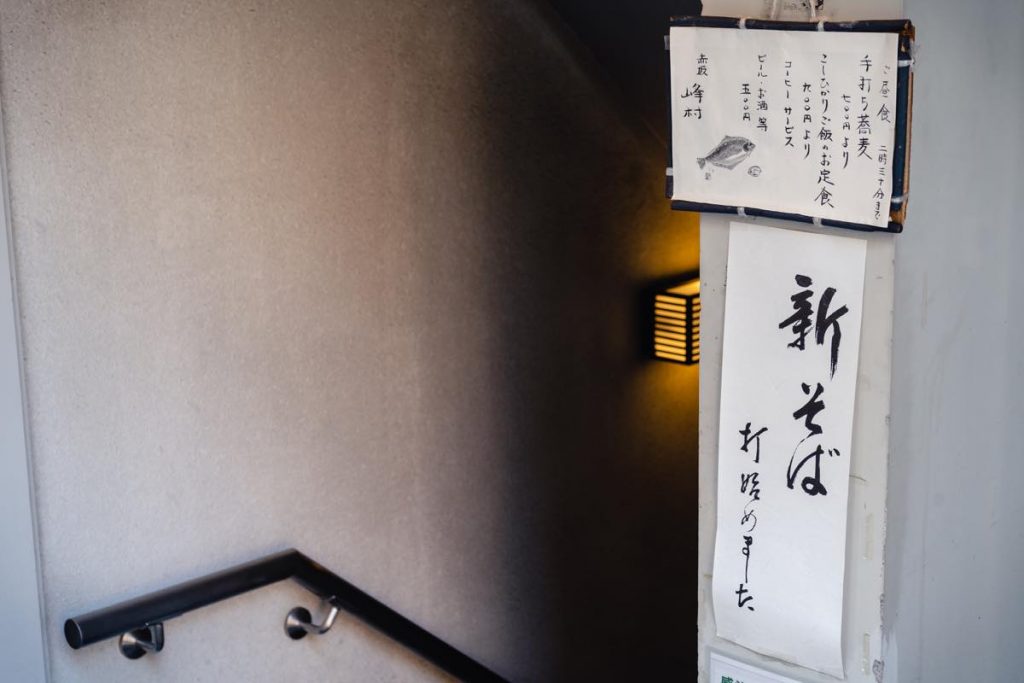 ご昼食 二時三十分まで
手打ち蕎麦
七〇〇円より
こしひかりご飯のお定食
九〇〇円より
コーヒーサービス
ビール・お酒等
五〇〇円
赤坂 峰村
新そば
打始めました